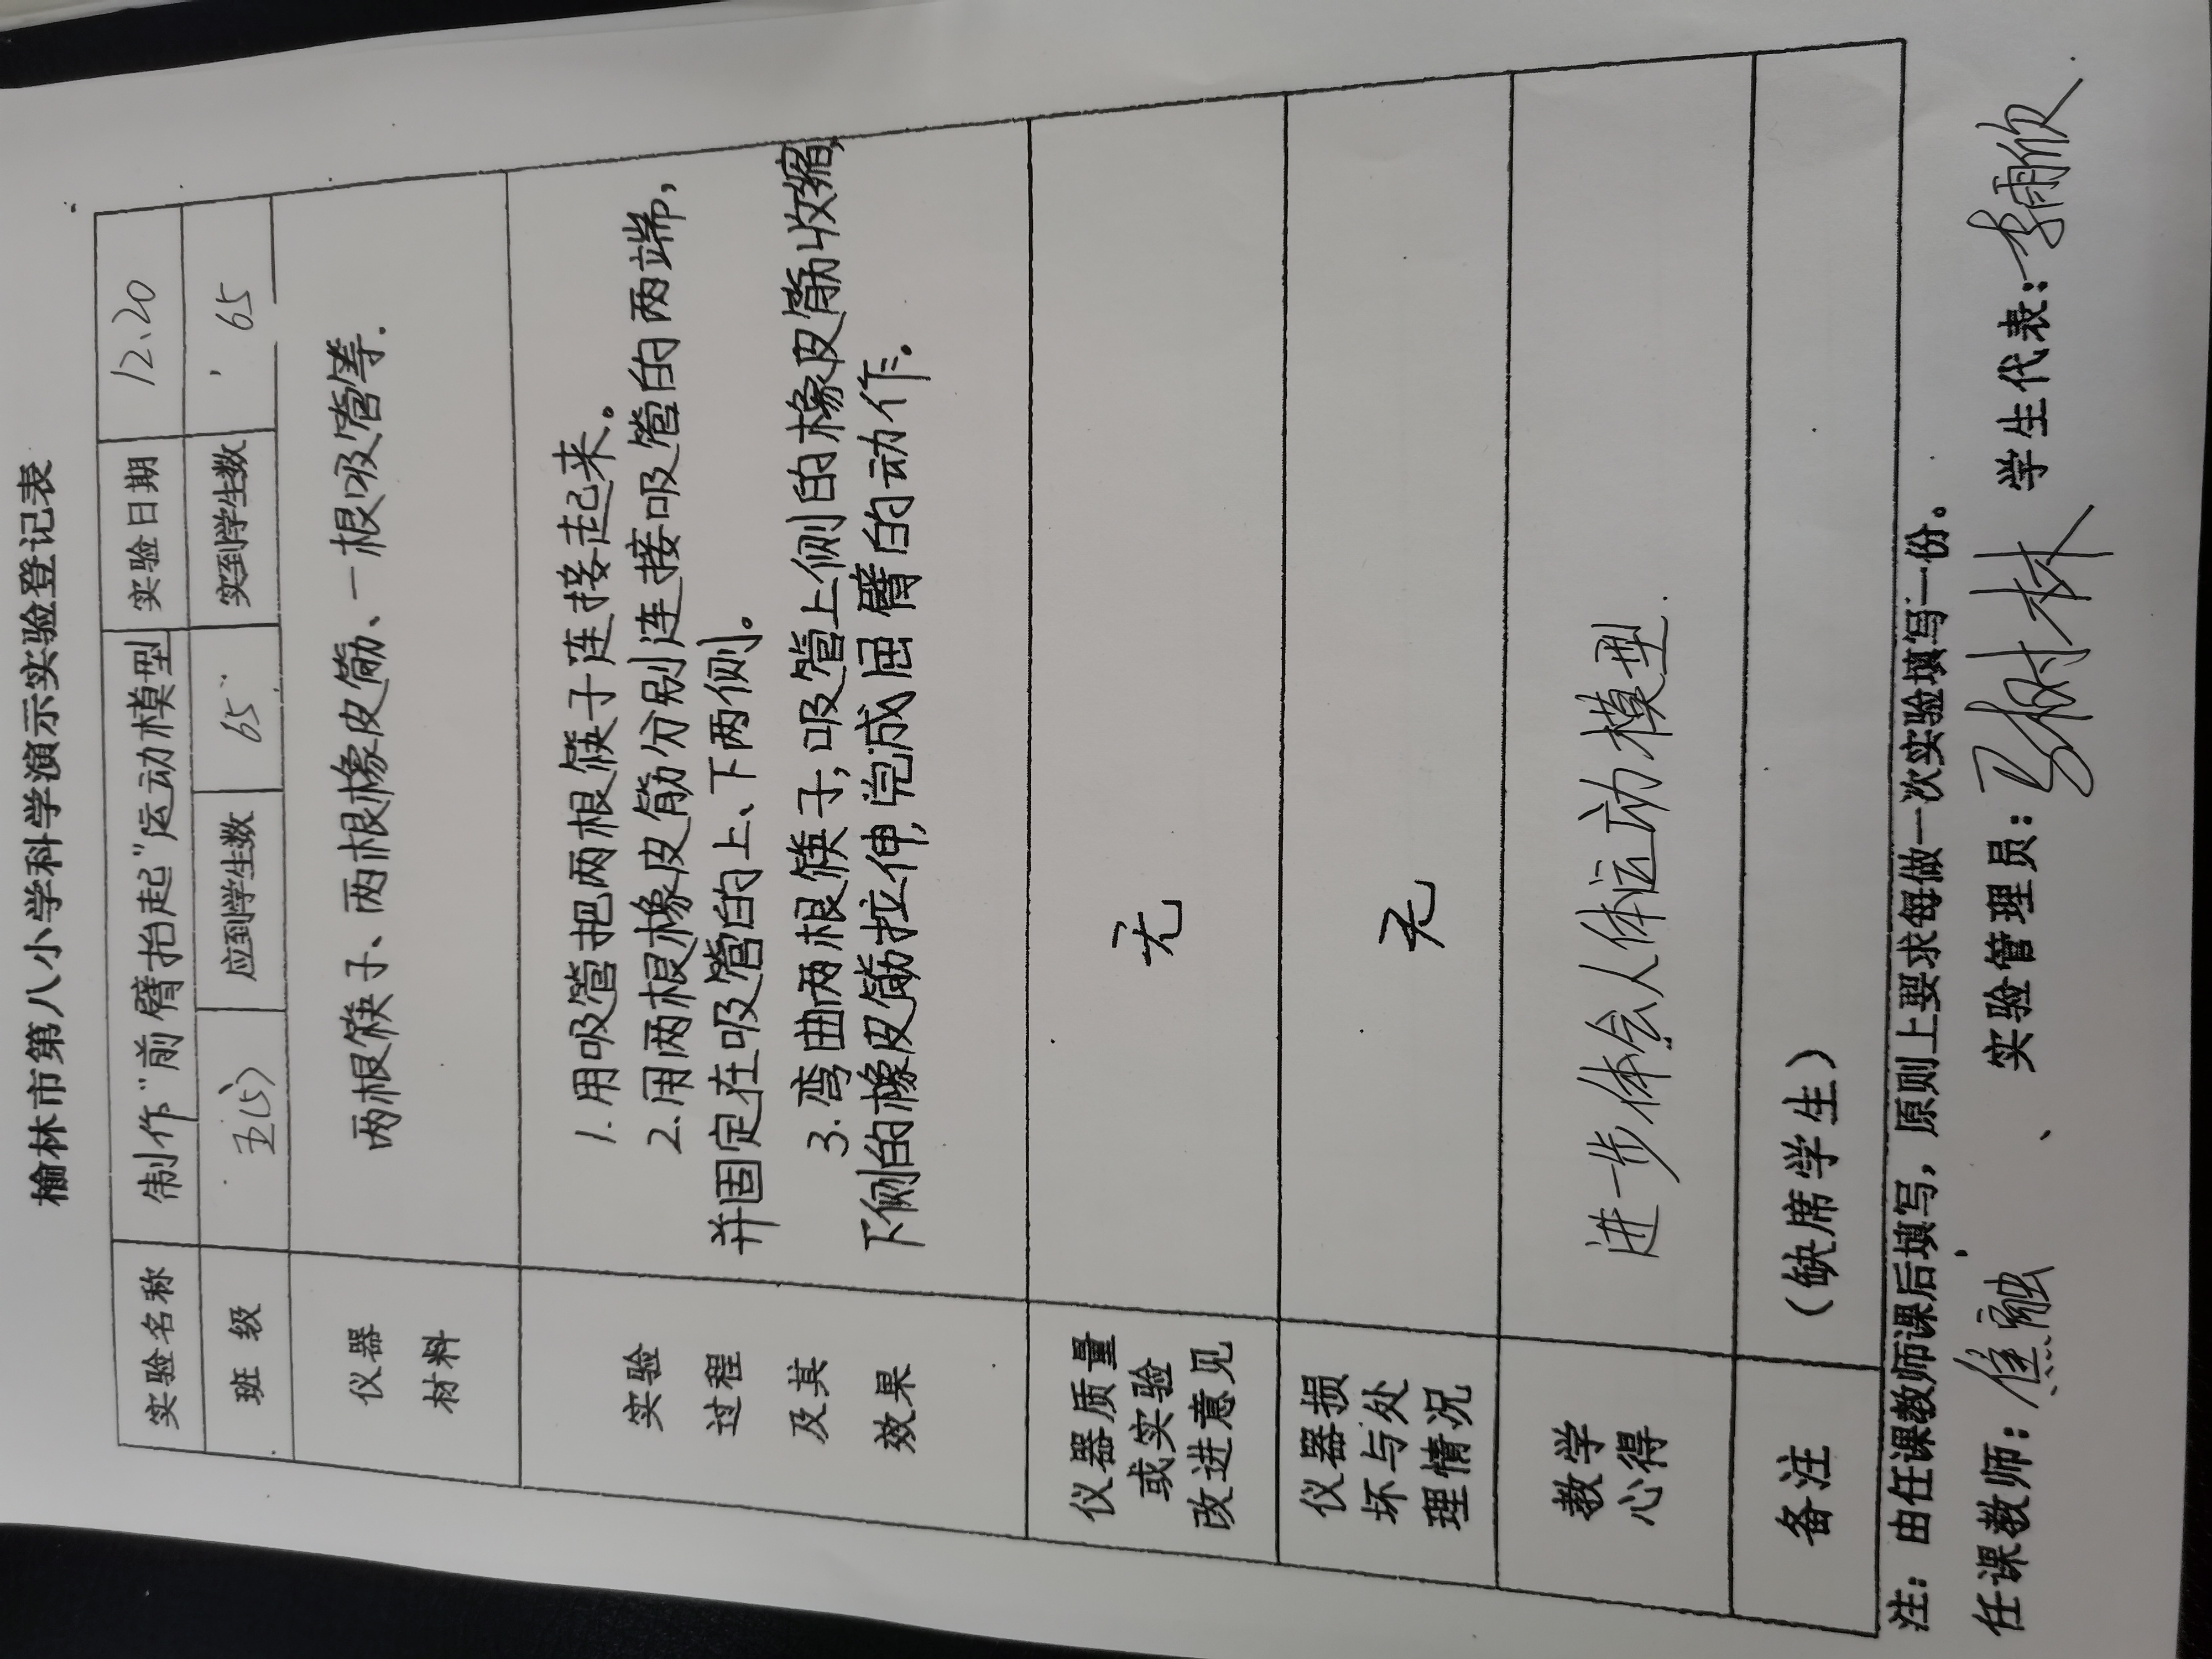 榆林市第八小学科学演示实验登记表
实验名称 制作“前臂抬起”运动模型 实验日期 12.20
班 级 五(5) 应到学生数 65 实到学生数 65
仪器
材料
两根筷子、两根橡皮筋、一根吸管等.
实验
过程
及其
效果
1.用吸管把两根筷子连接起来。
2.用两根橡皮筋分别连接吸管的两端,
并固定在吸管的上、下两侧。
3.弯曲两根筷子,吸管上侧的橡皮筋收缩,
下侧的橡皮筋拉伸,完成屈臂的动作.
仪器质量
或实验
改进意见
无
仪器损
坏与处
理情况
无
教学
心得
进一步体会人体运动模型.
备注 (缺席学生)
注:由任课教师课后填写,原则上要求每做一次实验填写一份。
任课教师:焦融 、 实验管理员:马树林 学生代表:李雨欣